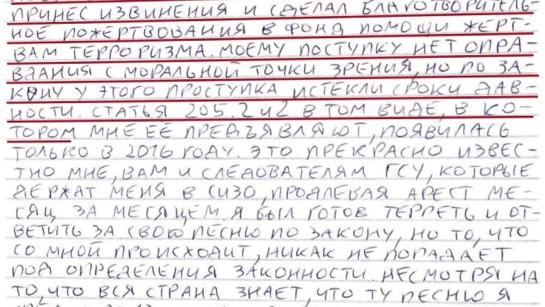 ПРИНЕС ИЗВИНЕНИЯ И СДЕЛАЛ БЛАГОТВОРИТЕЛЬ-
НОЕ ПОЖЕРТВОВАНИЯ В ФОНД ПОМОЩИ ЖЕРТ-
ВАМ ТЕРРОРИЗМА. МОЕМУ ПОСТУПКУ НЕТ ОПРА-
ВДАНИЯ С МОРАЛЬНОЙ ТОЧКИ ЗРЕНИЯ, НО ПО ЗА-
КОНУ У ЭТОГО ПРОСТУПКА ИСТЕКЛИ СРОКИ ДАВ-
НОСТИ. СТАТЬЯ 205.2 Ч2 В ТОМ ВИДЕ, В КО-
ТОРОМ МНЕ ЕЁ ПРЕДЪЯВЛЯЮТ, ПОЯВИЛАСЬ
ТОЛЬКО В 2016 ГОДУ. ЭТО ПРЕКРАСНО ИЗВЕС-
ТНО МНЕ, ВАМ И СЛЕДОВАТЕЛЯМ ГСУ, КОТОРЫЕ
ДЕРЖАТ МЕНЯ В СИЗО, ПРОДЛЕВАЯ АРЕСТ МЕ-
СЯЦ ЗА МЕСЯЦЕМ. Я БЫЛ ГОТОВ ТЕРПЕТЬ И ОТ-
ВЕТИТЬ ЗА СВОЮ ПЕСНЮ ПО ЗАКОНУ, НО ТО, ЧТО
СО МНОЙ ПРОИСХОДИТ, НИКАК НЕ ПОПАДАЕТ
ПОД ОПРЕДЕЛЕНИЯ ЗАКОННОСТИ. НЕСМОТРЯ НА
ТО, ЧТО ВСЯ СТРАНА ЗНАЕТ, ЧТО ТУ ПЕСНЮ Я